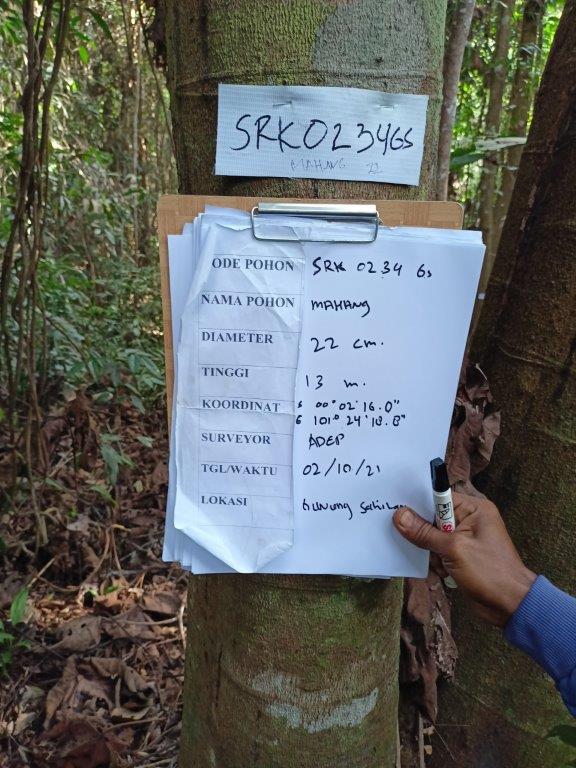 SRK0234GS
MAHANG 22
ODE POHON SRK 0234 GS
NAMA POHON MAHANG
DIAMETER 22 cm.
TINGGI 13 m.
KOORDINAT S 00° 02' 16.0"
E 101° 24' 18.8"
SURVEYOR ADEP
TGL/WAKTU 02/10/21
LOKASI Gunung Sahilan